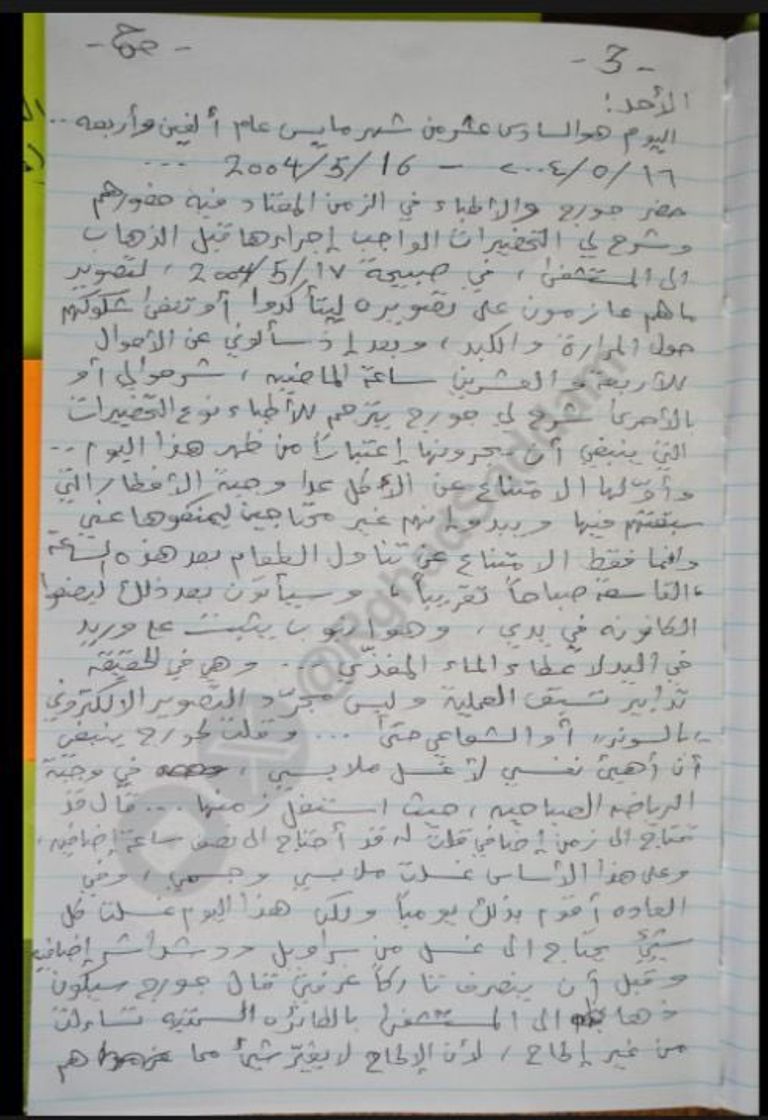 - 3 -
الأحد:
اليوم هو السادس عشر من شهر مايس عام ألفين وأربعه ..
١٦/٥/٢٠٠٤ - 2004/5/16 ...
حضر جورج والأطباء في الزمن المعتاد فيه حضورهم
وشرح لي التحضيرات الواجب إجراءها قبل الذهاب
الى المستشفى، في صبيحة 2004/5/١٧، لتصوير
ما هم عازمون على تصويره ليتأكدوا أو تنفى شكوكهم
حول المرارة والكبد، وبعد إذ سألوني عن الأحوال
للأربعة والعشرين ساعة الماضيه، شرحوا لي أو
بالأحرى شرح لي جورج يترجم للأطباء نوع التحضيرات
التي ينبغي أن يجرونها إعتباراً من ظهر هذا اليوم ..
وأولها الامتناع عن الأكل عدا وجبة الافطار التي
سبقتهم فيها ويبدو إنهم غير محتاجين ليمنعوها عني
وانما فقط الامتناع عن تناول الطعام بعد هذه الساعة
"التاسعة صباحاً تقريباً"، وسيأتون بعد ذلك ليضعوا
الكانونه في يدي، وهو انبوب يثبت على وريد
في اليد لاعطاء الماء المغذّي ... وهي في الحقيقة
تدابير تسبق العملية وليس مجرّد التصوير الالكتروني
"بالسونر" أو الشعاعي حتى ... وقلت لجورج ينبغي
أن أهيئ نفسي لأغسل ملابسي، في وجبة
الرياضه الصباحيه، حيث استغل زمنها ... قال قد
تحتاج الى زمن إضافي قلت له قد أحتاج الى نصف ساعة إضافيه،
وعلى هذا الأساس غسلت ملابسي وجسمي، وفي
العاده أقوم بذلك يومياً ولكن هذا اليوم غسلت كل
شيئ يحتاج الى غسل من سراويل ودشداشه إضافيه
وقبل أن ينصرف تاركاً غرفتي قال جورج سيكون
ذهابك الى المستشفى بالطائره السمتيه تساءلت
من غير إلحاح، لأن الإلحاح لا يغيّر شيئاً مما هم